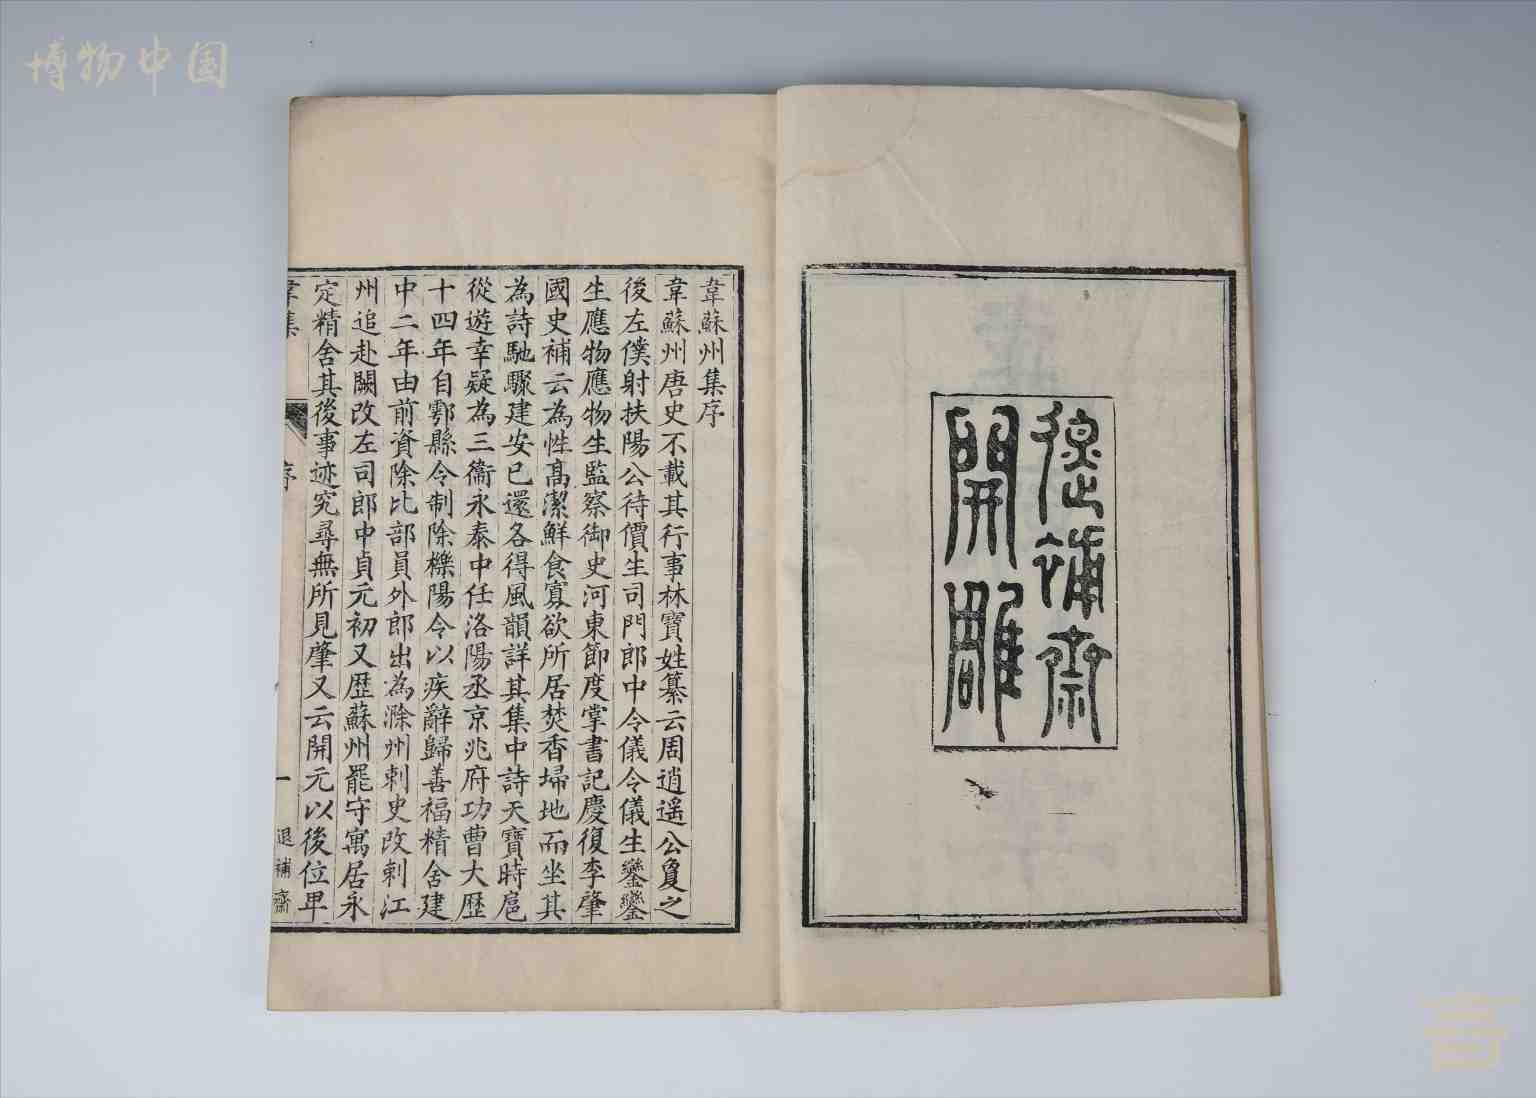 博物中国
退補齋
開雕
韋蘇州集序
韋蘇州唐史不載其行事林寶姓纂云周逍遥公敻之
後左僕射扶陽公待價生司門郎中令儀令儀生鑾鑾
生應物應物生監察御史河東節度掌書記慶復李肇
國史補云為性高潔鮮食寡欲所居焚香埽地而坐其
為詩馳驟建安已還各得風韻詳其集中詩天寶時扈
從遊幸疑為三衞永泰中任洛陽丞京兆府功曹大歴
十四年自鄠縣令制除櫟陽令以疾辭歸善福精舍建
中二年由前資除比部員外郎出為滁州刺史改刺江
州追赴闕改左司郎中貞元初又歴蘇州罷守寓居永
定精舍其後事迹究尋無所見肇又云開元以後位卑
韋集
序
一
退補齋